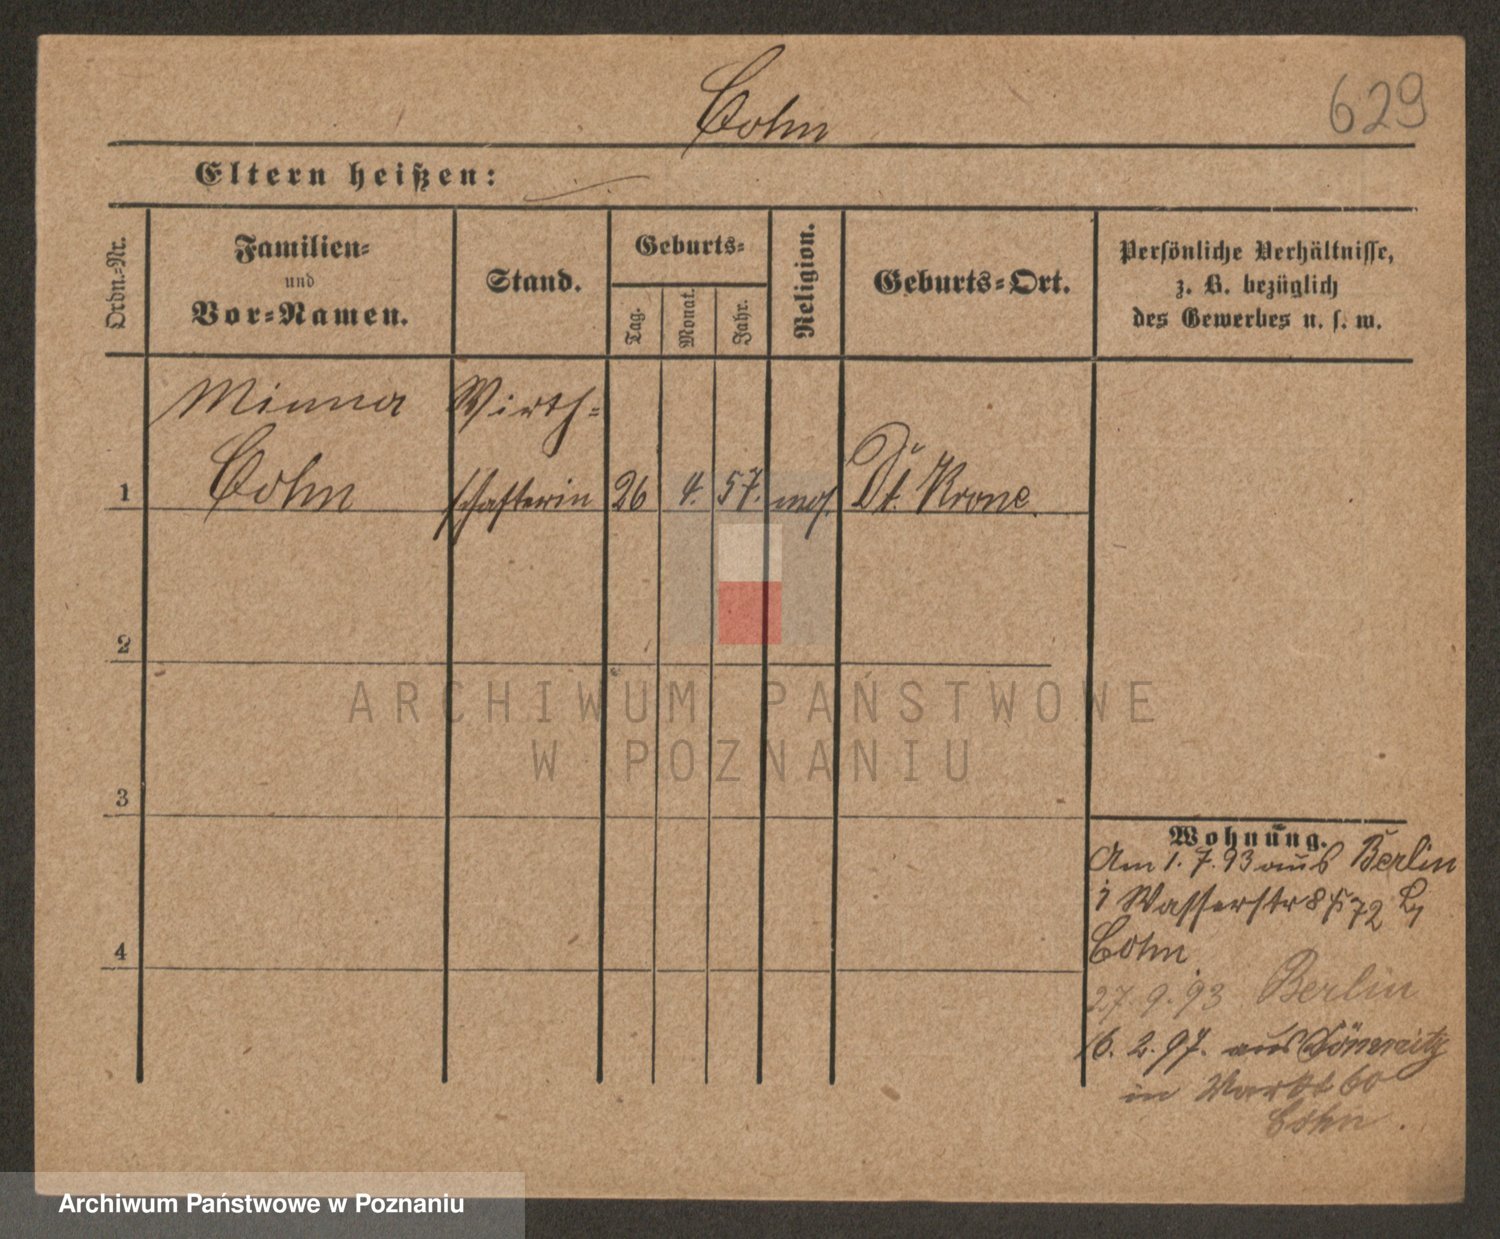 Cohn
629
Eltern heißen:
Ordn.-Nr.
Familien-
und
Vor-Namen.
Stand.
Geburts-
Tag.
Monat.
Jahr.
Religion.
Geburts-Ort.
Persönliche Verhältnisse,
z. B. bezüglich
des Gewerbes u. s. w.
Minna Wirth-
1 Cohn schafterin 26 4. 57. mos. Dt. Krone.
2
ARCHIWUM PAŃSTWOWE
W POZNANIU
3
Wohnung.
Am 1. 7. 93 aus Berlin
i Wasserstr 8/9 72 bei
Cohn
4
27. 9. 93 Berlin
6. 2. 97. aus
in Markt 60
Cohn.
Archiwum Państwowe w Poznaniu